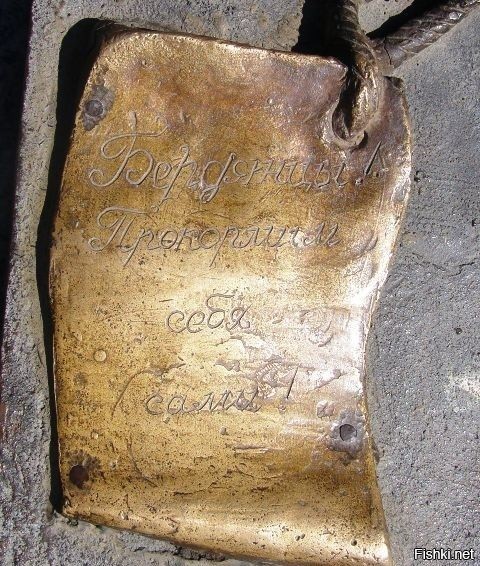 Бердянцы!
Прокормим
себя
сами!
Fishki.net